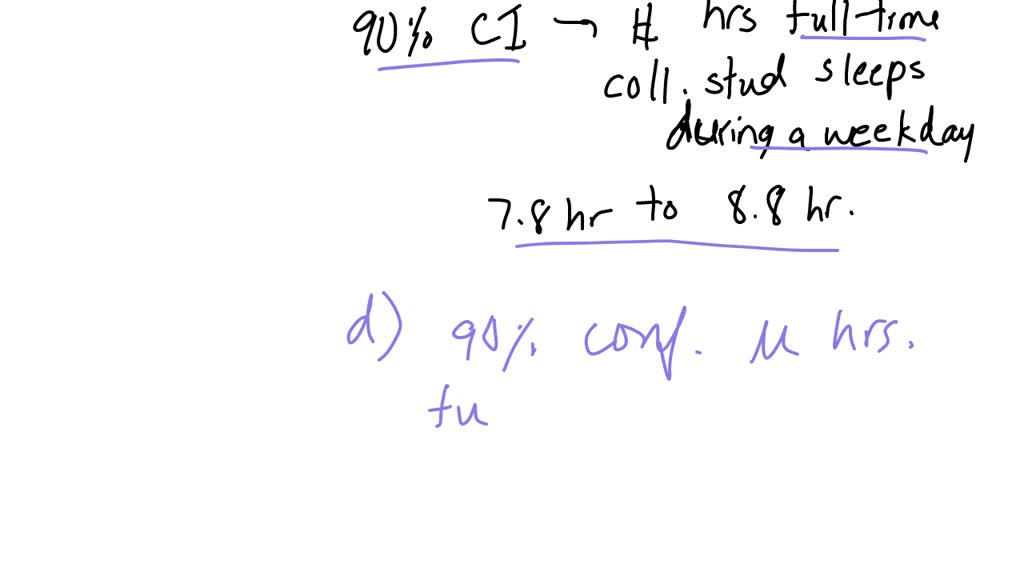 90% CI → # hrs full-time
coll. stud sleeps
during a weekday
7.8 hr to 8.8 hr.
d) 90% conf. μ hrs.
fu